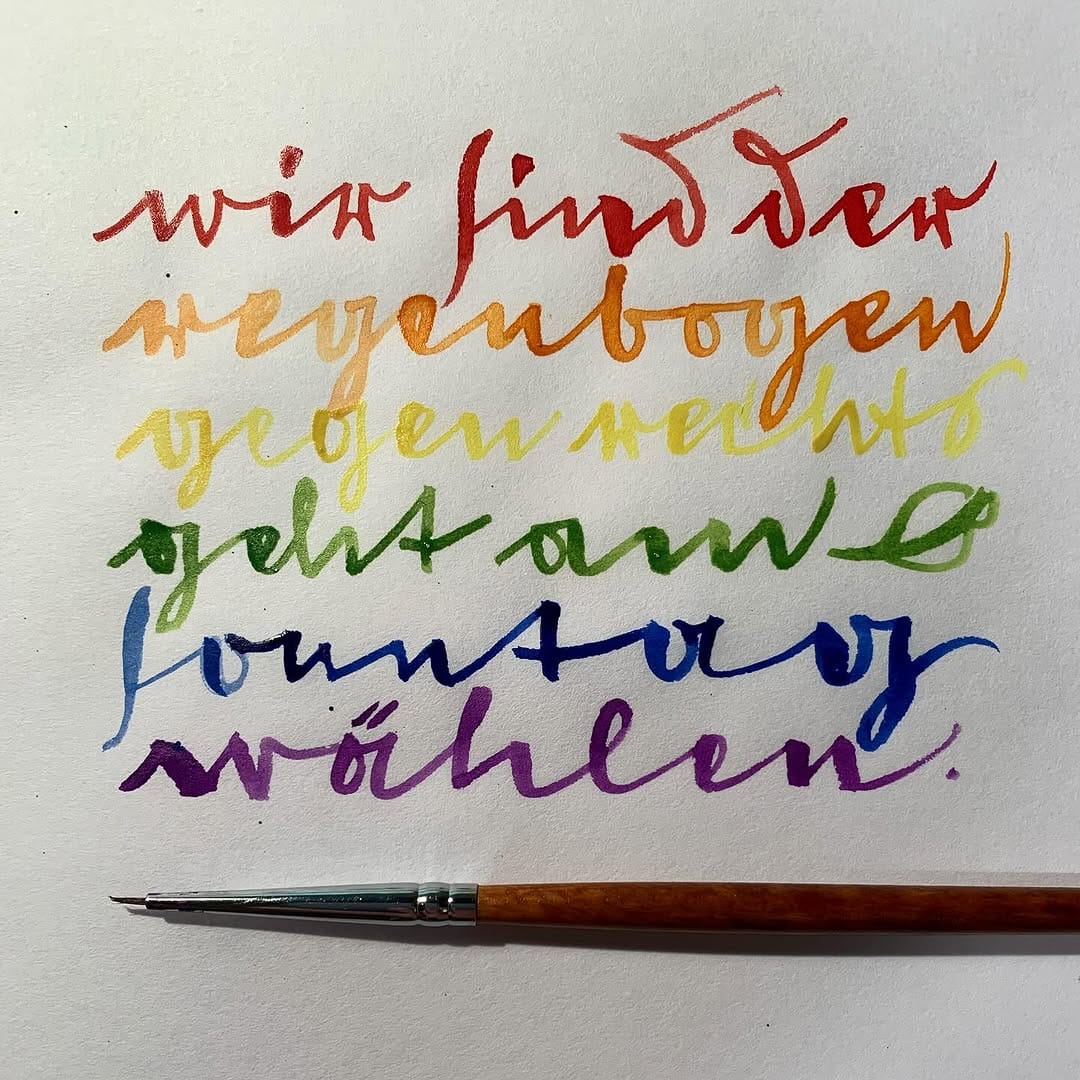 wir sind der
regenbogen
gegen rechts
geht am
sonntag
wählen.